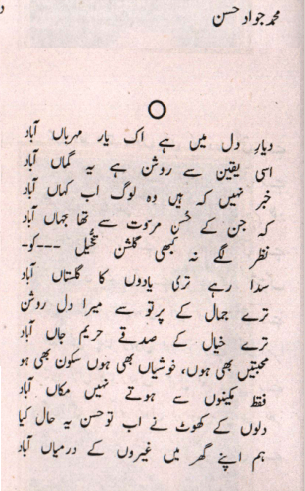 محمد جواد حسن
دیارِ دل میں ہے اک یار مہرباں آباد
اسی یقین سے روشن ہے یہ گماں آباد
خبر نہیں کہ ہیں وہ لوگ اب کہاں آباد
کہ جن کے حُسنِ مروّت سے تھا جہاں آباد
نظر لگے نہ کبھی گلشنِ تخیُّل ---کو-
سدا رہے تری یادوں کا گلستاں آباد
ترے جمال کے پرتو سے میرا دل روشن
ترے خیال کے صدقے حریمِ جاں آباد
محبتیں بھی ہوں، خوشیاں بھی ہوں سکون بھی ہو
فقط مکینوں سے ہوتے نہیں مکاں آباد
دلوں کے کھوٹ نے اب تو حسن یہ حال کیا
ہم اپنے گھر میں غیروں کے درمیاں آباد